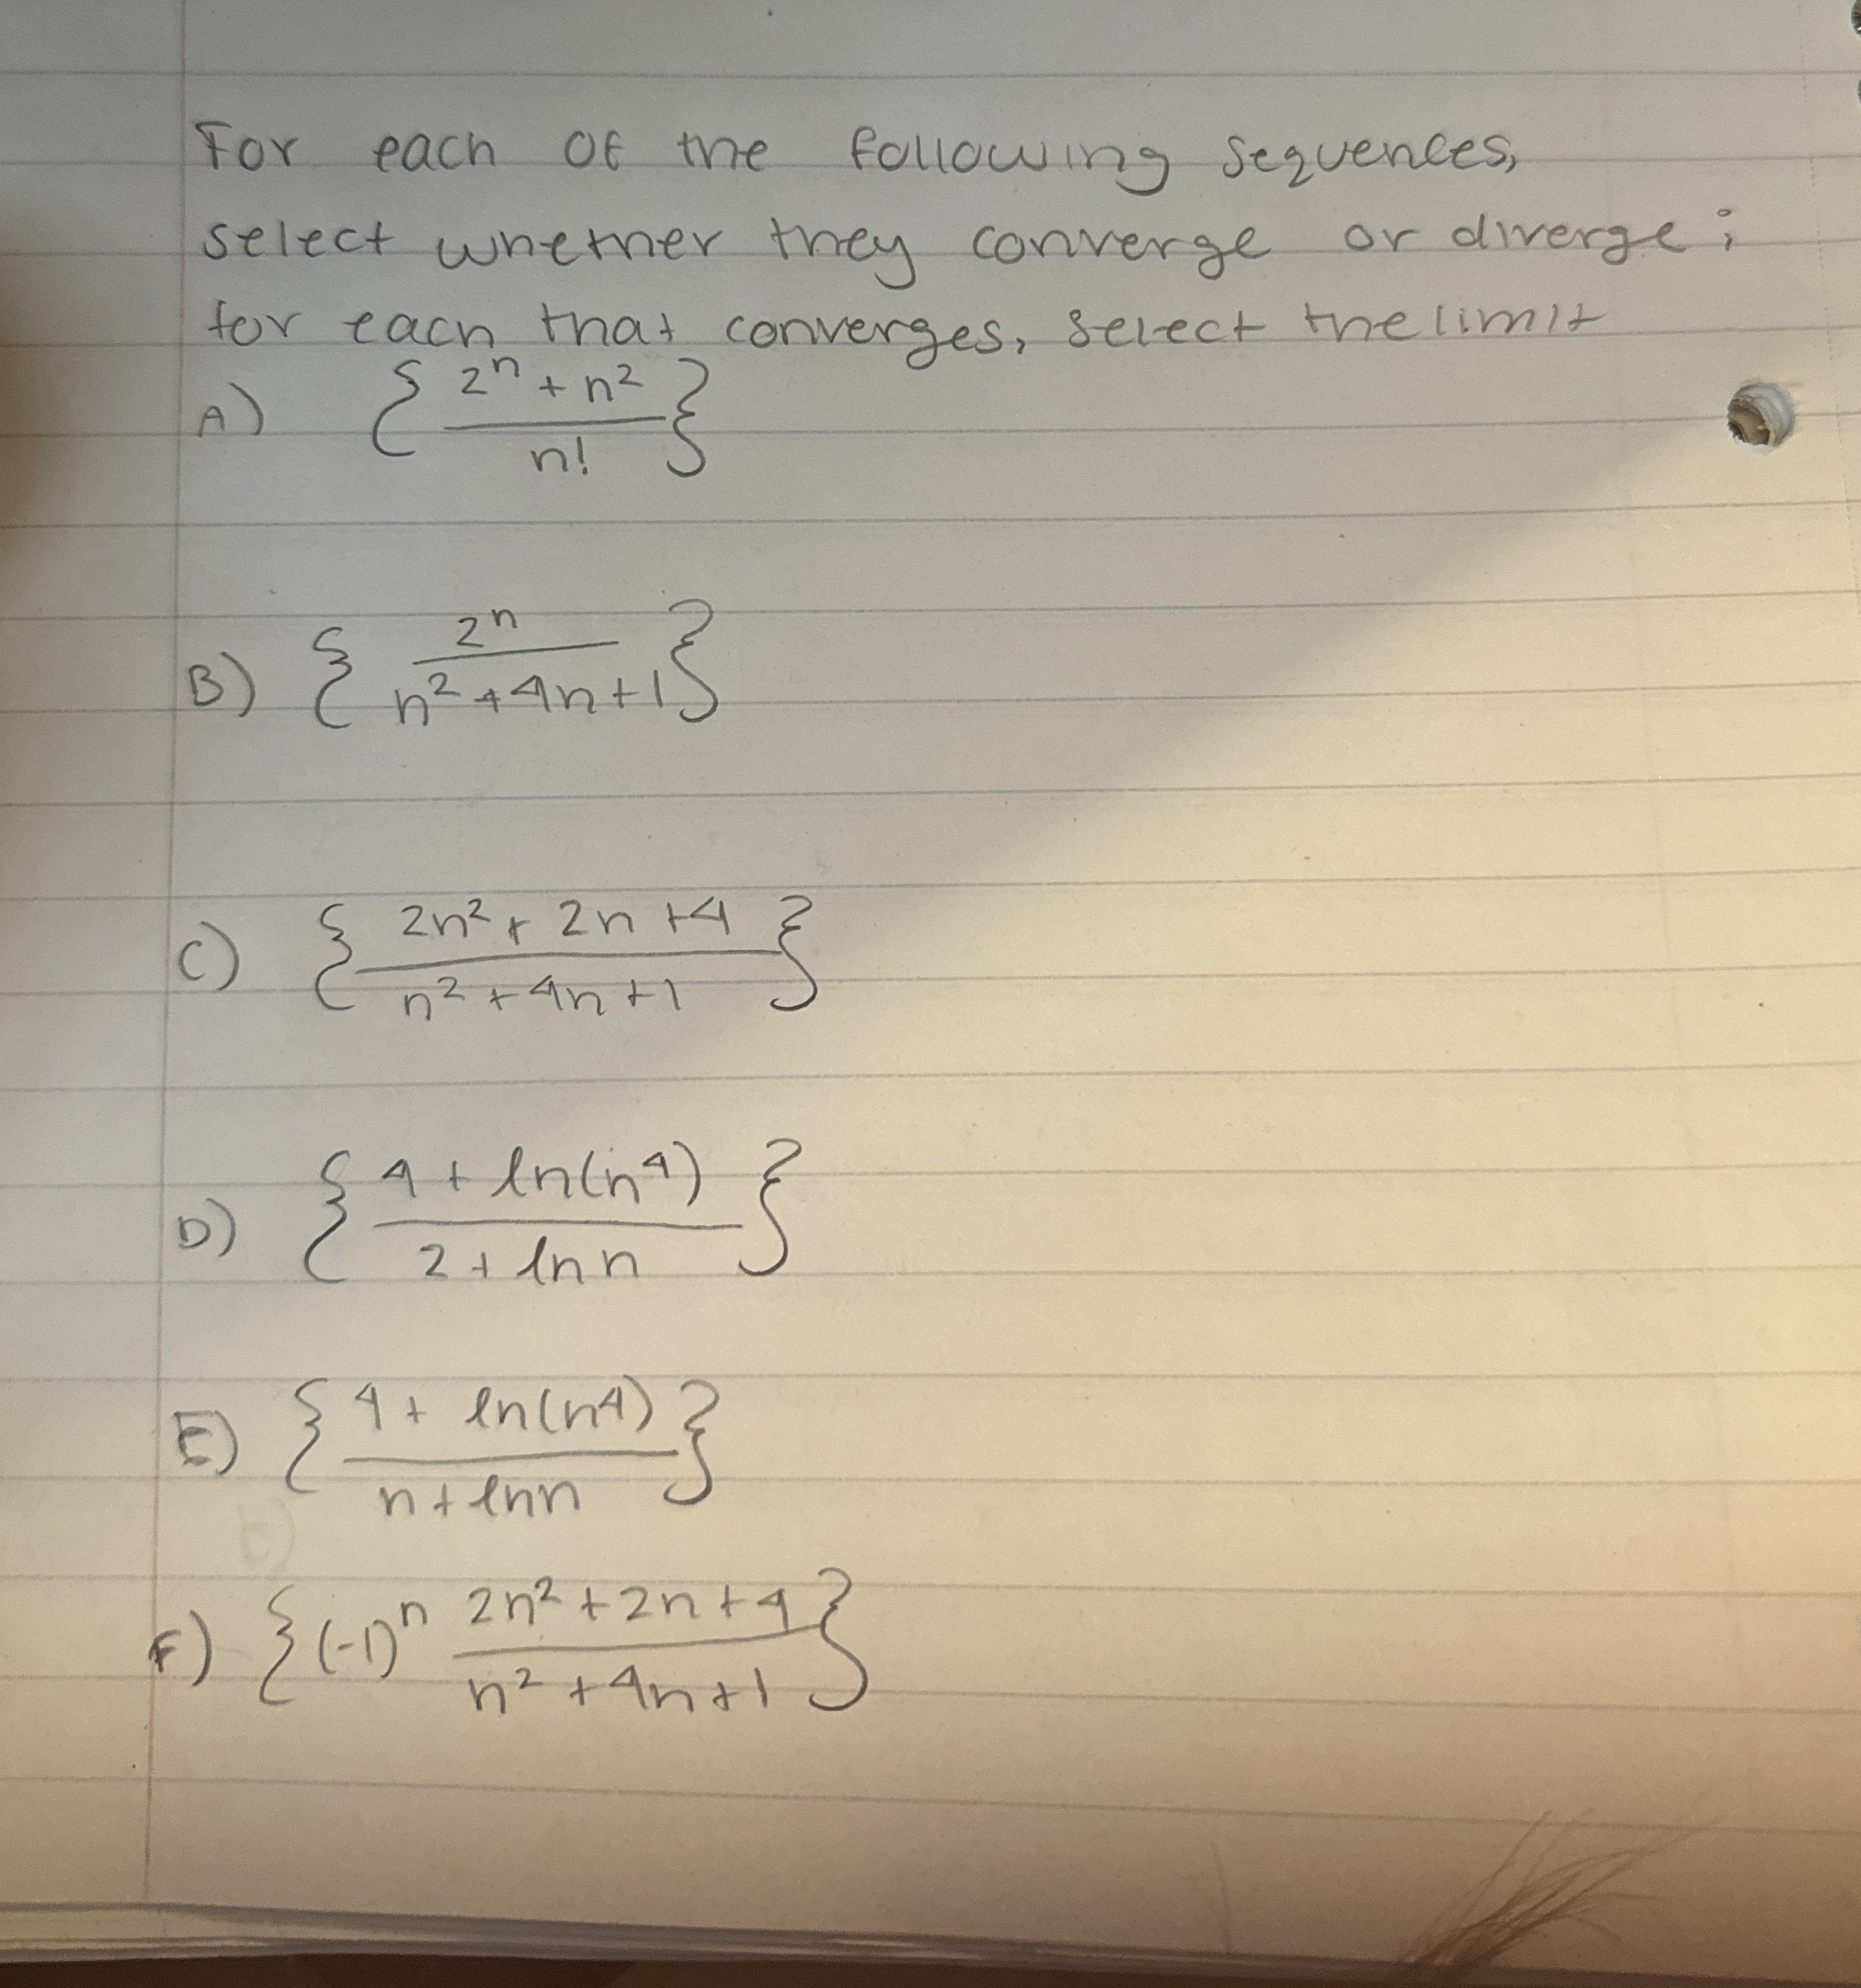 For each of the following sequences,
select whether they converge or diverge;
for each that converges, select the limit
A) { (2^n + n^2) / n! }
B) { 2^n / (n^2 + 4n + 1) }
C) { (2n^2 + 2n + 4) / (n^2 + 4n + 1) }
D) { (4 + ln(n^4)) / (2 + ln n) }
E) { (4 + ln(n^4)) / (n + ln n) }
F) { (-1)^n (2n^2 + 2n + 4) / (n^2 + 4n + 1) }